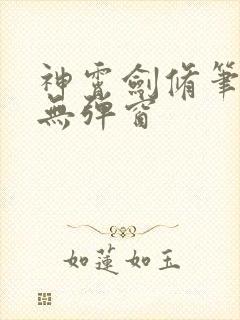 神霄劍脩筆
無彈窗
如蓮如玉